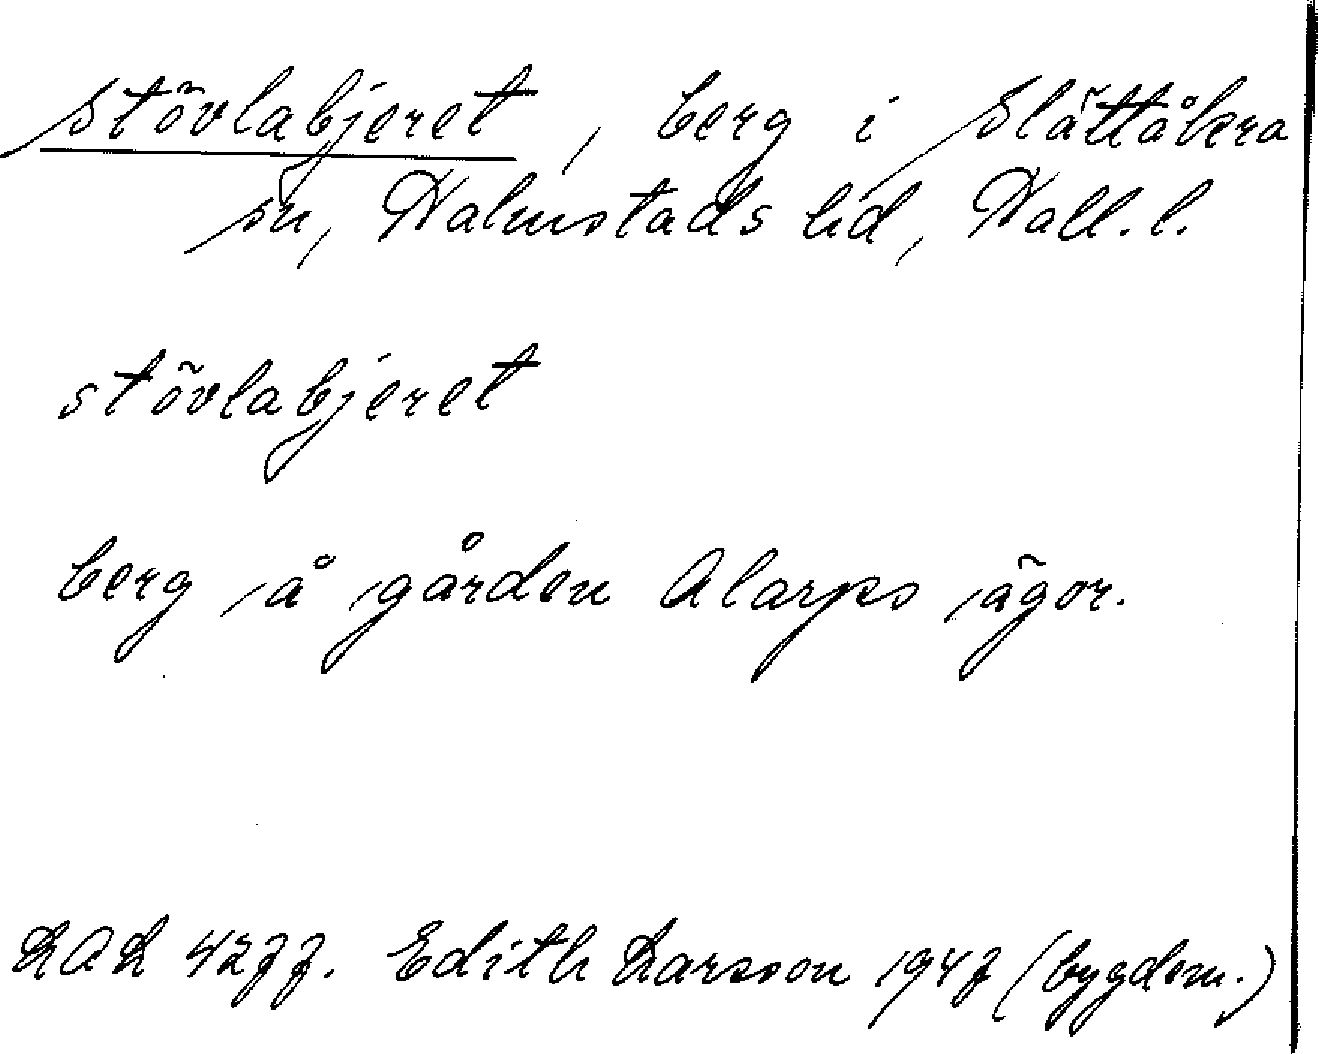 Stövlabjeret, berg i Slättåkra
sn, Halmstads hd, Hall. l.
stövlabjeret
berg å gården Alarps ägor.
LAL 4277. Edith Larsson 1947 (bygdem.)